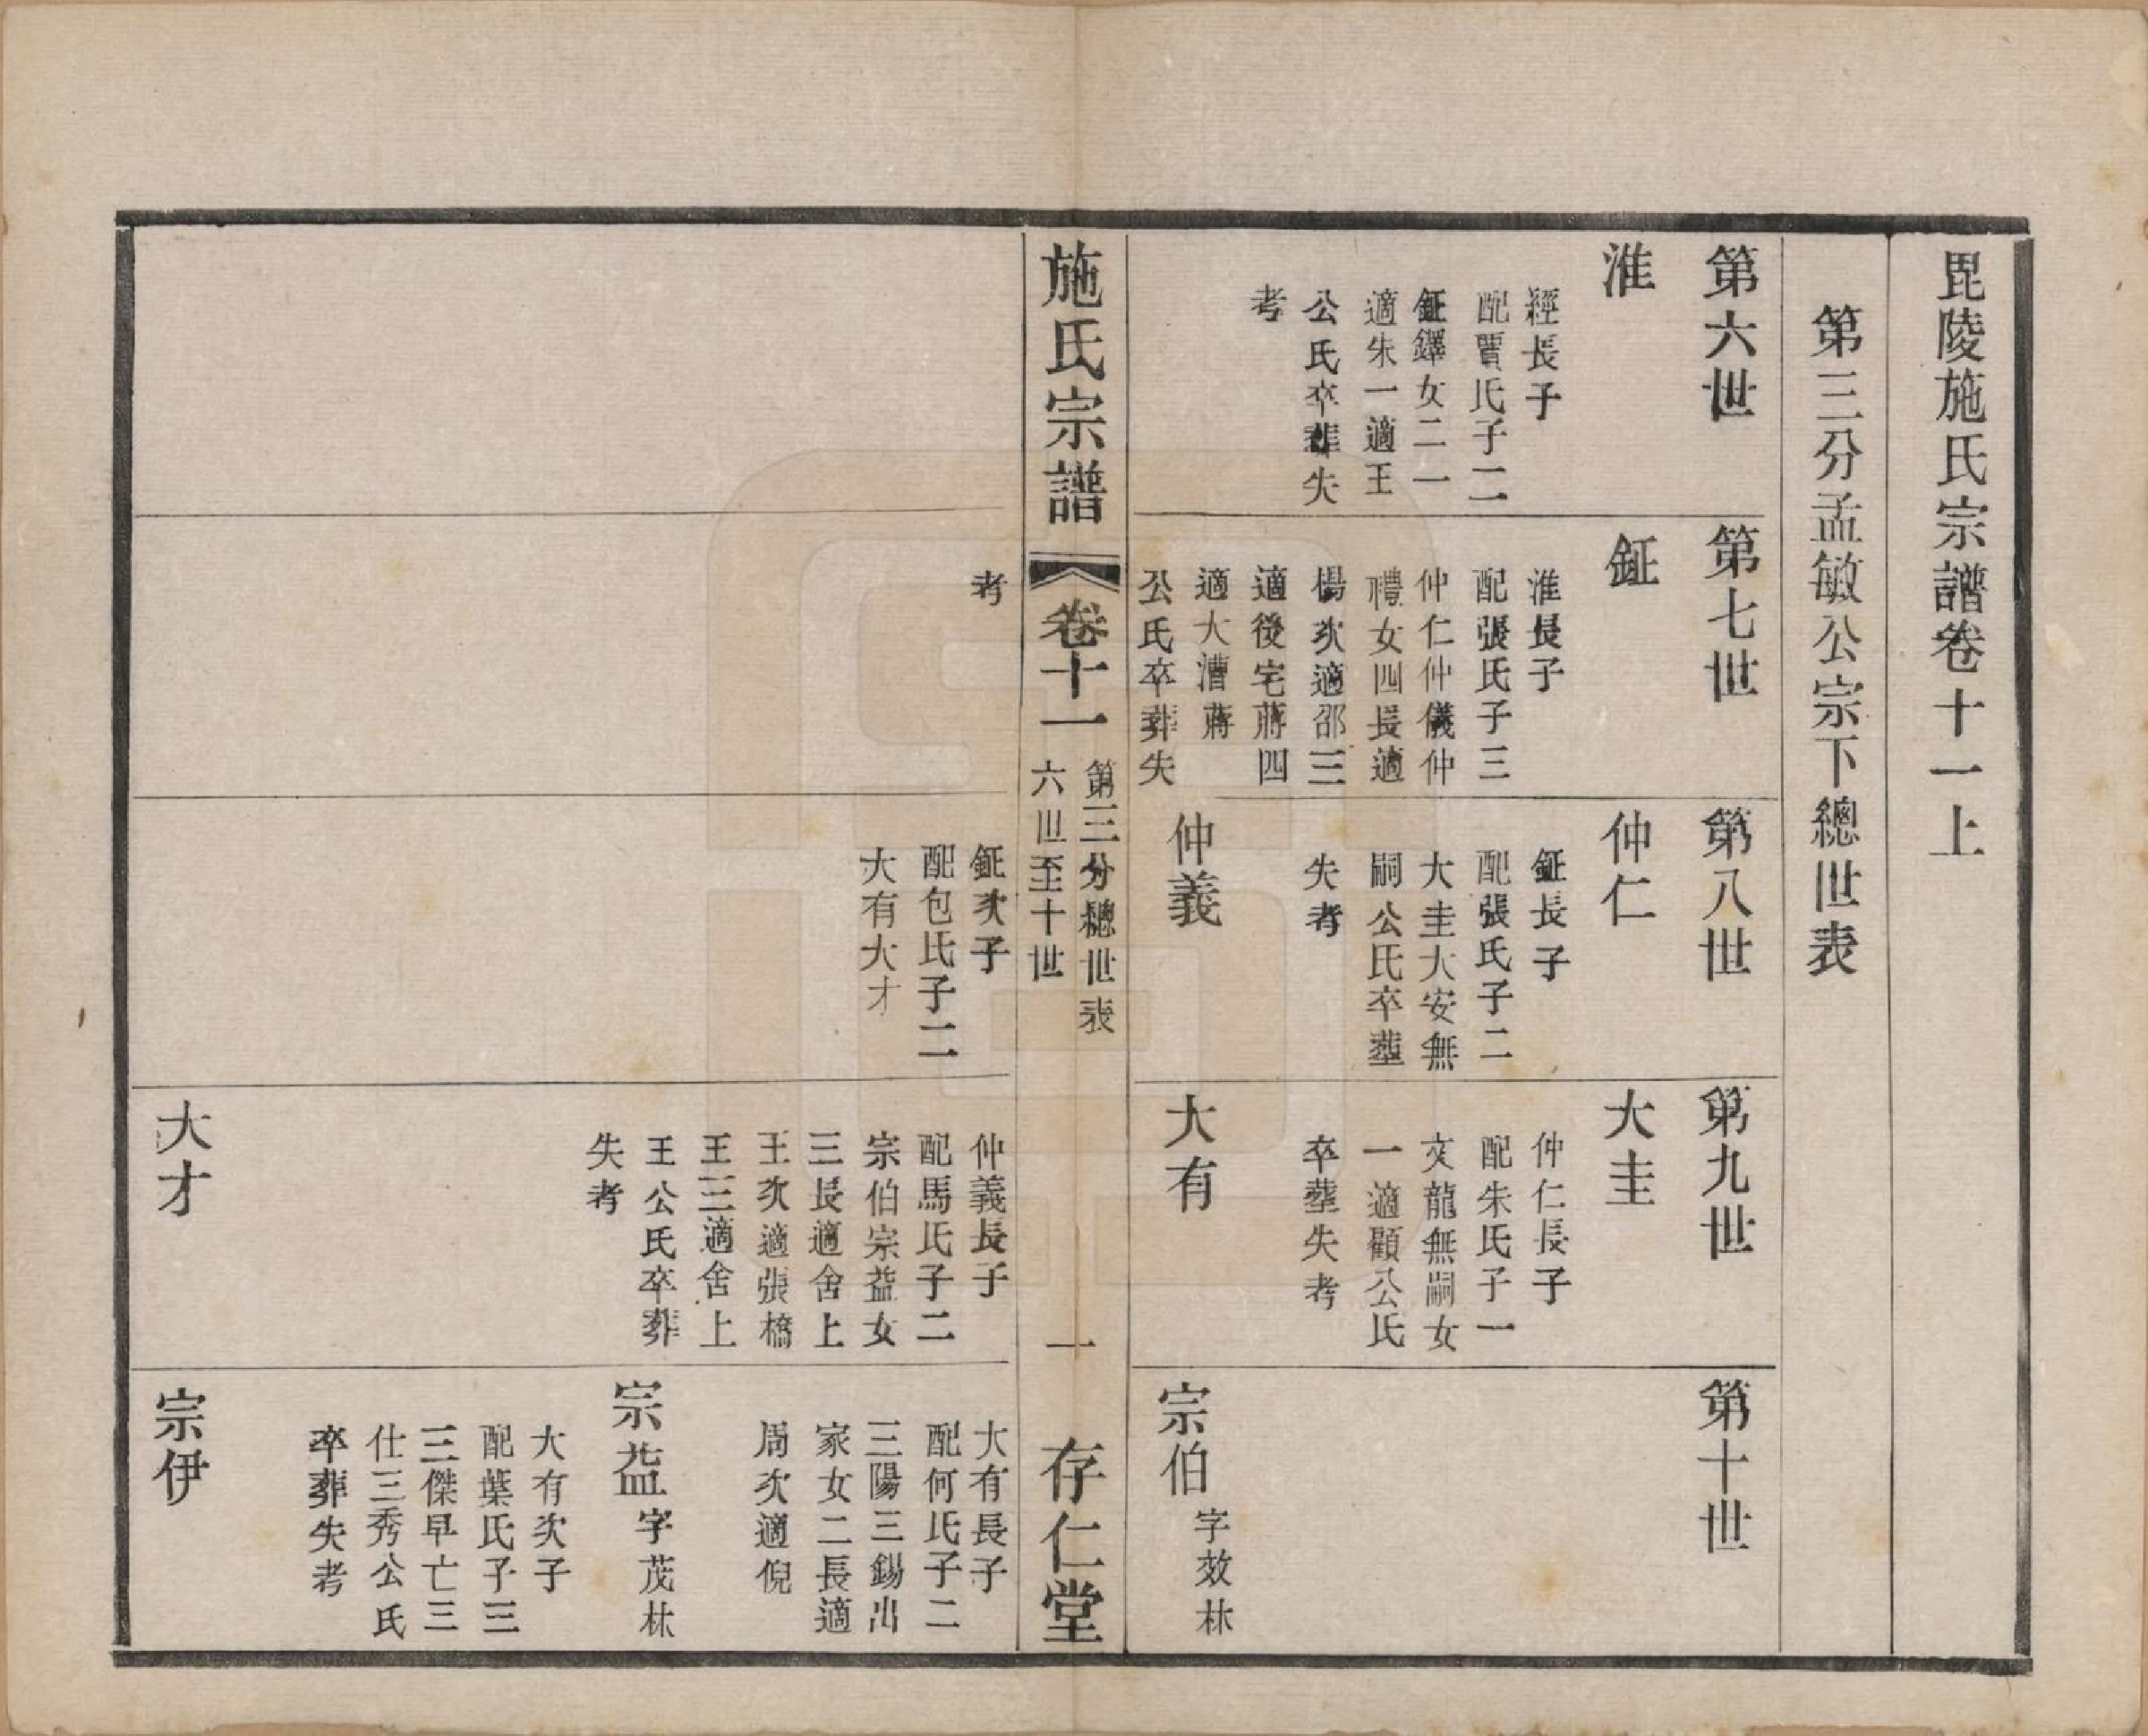 毘陵施氏宗譜卷十一上
第三分孟敏公宗下總世表
第六世
淮
經長子
配賈氏子二
鉦鐸女二一
適朱一適王
公氏卒葬失
考
第七世
鉦
淮長子
配張氏子三
仲仁仲儀仲
禮女四長適
楊次適邵三
適後宅蔣四
適大漕蔣
公氏卒葬失
考
第八世
仲仁
鉦長子
配張氏子二
大圭大安無
嗣公氏卒塟
失考
仲義
鉦次子
配包氏子二
大有大才
第九世
大圭
仲仁長子
配朱氏子一
文龍無嗣女
一適顧公氏
卒塟失考
大有
仲義長子
配馬氏子二
宗伯宗益女
三長適舍上
王次適張橋
王三適舍上
王公氏卒葬
失考
大才
第十世
宗伯 字效林
大有長子
配何氏子二
三陽三錫出
家女二長適
周次適倪
宗益 字茂林
大有次子
配葉氏子三
三傑早亡三
仕三秀公氏
卒葬失考
宗伊
施氏宗譜
卷十一
第三分總世表
六世至十世
一
存仁堂